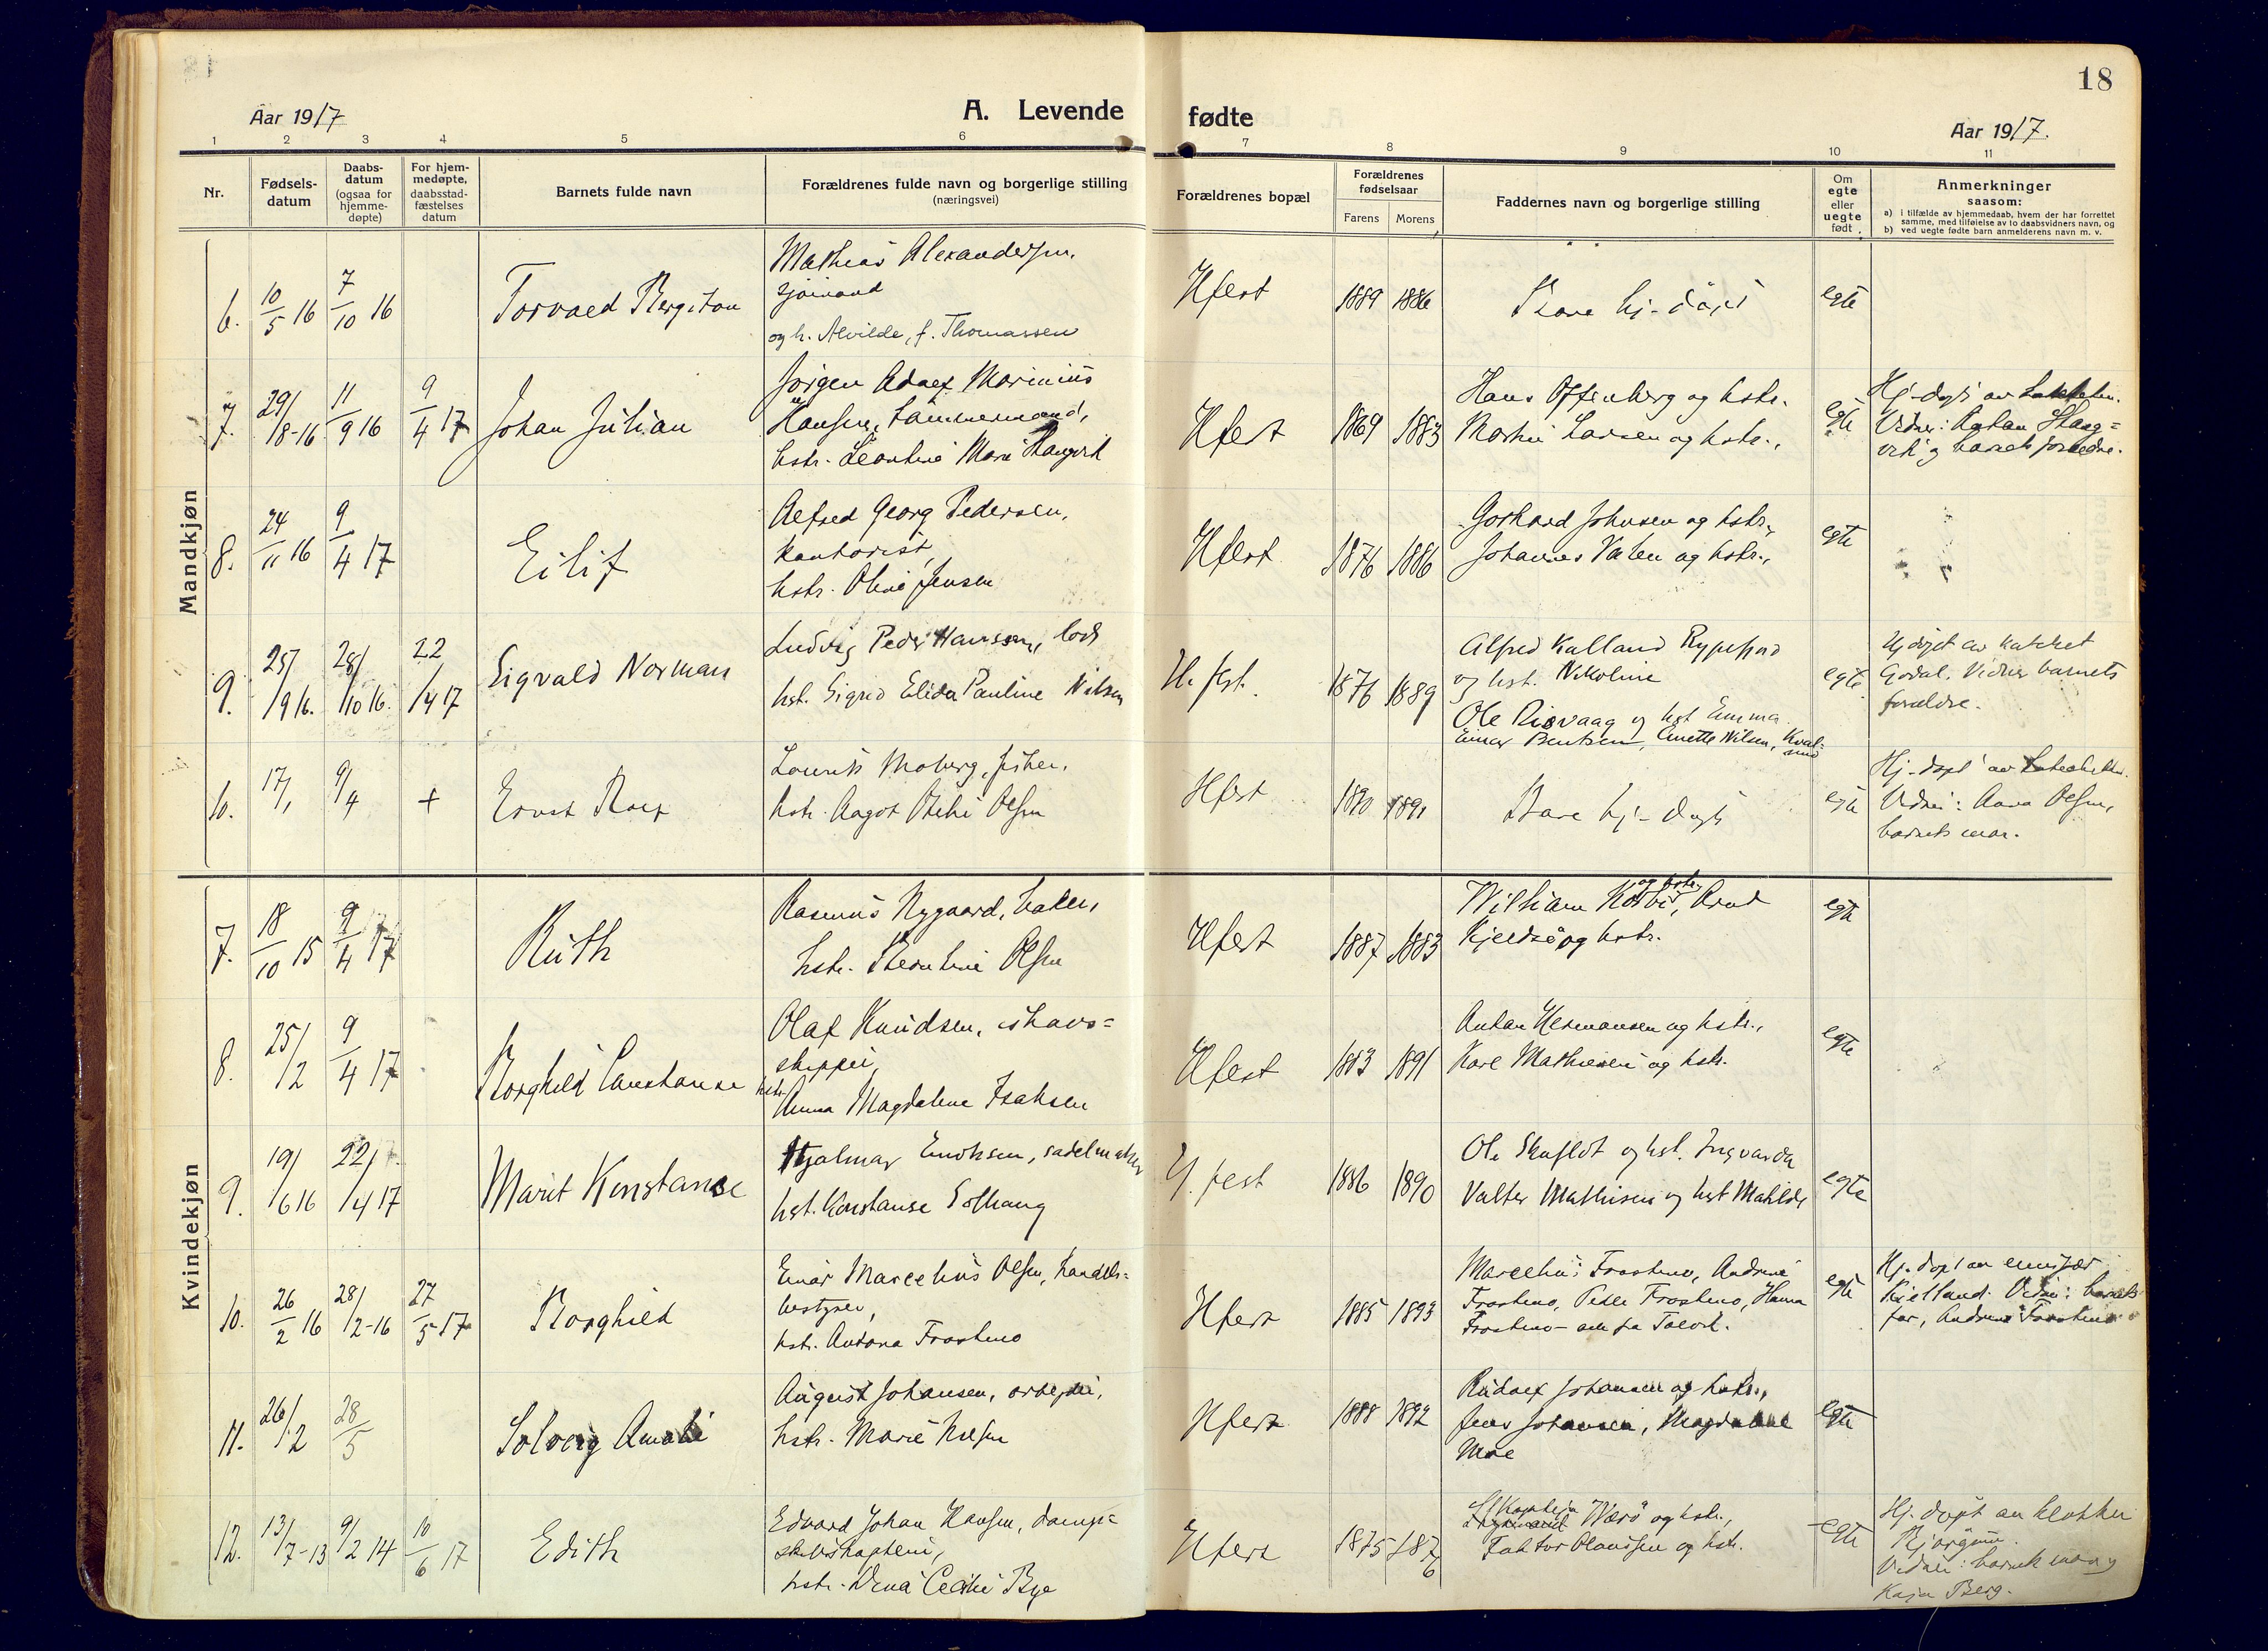 18
Aar 1917
A. Levende
fødte
Aar 1917.
1 2 3 4 5 6 7 8 9 10 11
Nr.
Fødsels-
datum
Daabs-
datum
(ogsaa for
hjemme-
døpte)
For hjem-
medøpte,
daabsstad-
fæstelses
datum
Barnets fulde navn
Forældrenes fulde navn og borgerlige stilling
(næringsvei)
Forældrenes bopæl
Forældrenes
fødselsaar
Farens Morens
Faddernes navn og borgerlige stilling
Om
egte
eller
uegte
født
Anmerkninger
saasom:
a) i tilfælde av hjemmedaab, hvem der har forrettet
samme, med tilføielse av to daabsvidners navn, og
b) ved uegte fødte barn anmelderens navn m. v.
Mandkjøn
6. 10/5 16 7/10 16
Torvald
Mathias Alexandersen,
sjømand
og h. Alvilde, f. Thomassen
Hfest 1889 1886
Bare hj-døpt
egte
7. 29/8-16 11/9 16 9/4 17
Johan Julian
Jørgen Adolf Marinius
Hansen, tømmermand,
hstr. Leontine Marie
Hfest 1869 1883
Hans Offenberg og hstr.
Martin Larsen og hstr.,
egte
Hj-døpt av kateketen.
Vidner:
og barnets forældre.
8. 24/11 16 9/4 17
Eilif
Alfred Georg Pedersen,
kontorist,
hstr. Oline Jensen
Hfest 1876 1886
Gerhard Johnsen og hstr.,
Johannes Valen og hstr.,
egte
9. 25/9 16. 28/10 16. 22/4 17
Sigvald Norman
Ludvig Peder Hanssen, lods
hst. Sigrid Elida Pauline Nilsen
H.fest. 1876 1889
Alfred Kalland Rypefjord
og hst. Nikoline
Ole Risvaag og hst Emma
Einar Bentsen, Anette Nilsen, Kval-
sund
egte
Hjdøpt av kateket
Godal. Vidner barnets
forældre.
10. 17/1 9/4 +
Ernst Rolf
Lauritz Moberg, fisker,
hstr. Aagot Otelie Olsen
Hfest 1890 1891
Bare hj-døpt
egte
Hj-døpt av kateketen.
Vidner: Anna Olsen,
barnets mor.
Kvindekjøn
7. 18/10 15 9/4 17
Ruth
Rasmus Nygaard, baker,
hstr. Olsen
Hfest 1887 1883
William og hstr., Arnt
Kjeldsø og hstr.
egte
8. 25/2 9/4 17
Borghild Constanse
Olaf Knudsen, ishavs-
skipper,
hstr. Anna Magdalene Isaksen
Hfest 1883 1891
Anton Hermansen og hstr.,
Kare Mathiesen og hstr.
egte
9. 19/6 16 22/4 17
Marit Konstanse
Hjalmar Enoksen, sadelmaker
hst. Konstanse Solhaug
H.fest 1886 1890
Ole Skuflot og hst. Ingvarda
Valter Mathisen og hst Matilde
egte
10. 26/2 16 28/12-16 27/5 17
Borghild
Einar Marcelius Olsen, handels-
bestyrer,
hstr. Antona Frostmo
Hfest 1885 1893
Marcelius Frostmo, Andrine
Frostmo, Peder Frostmo, Hanna
Frostmo - alle fra Talvik.
egte
Hj.døpt av
Kielland. Vidner: barnets
far, Andrine Frostmo
11. 26/12 28/5
Solveig Amalie
August Johansen, arbeider,
hstr. Marie Nilsen
Hfest 1888 1892
Rudolf Johansen og hstr.,
Jens Johansen, Magdalene
Moe
egte
12. 13/7-13 9/2 14 10/6 17
Edith
Edvard Johan Hansen, damp-
skibskaptein,
hstr. Cecilie Bye
Hfest 1875 1876
Kaptein Værø og hstr.,
Faktor Olaussen og hstr.
egte
Hj. døpt av klokker
Bjørgum.
Vidner: barnets mor og
Kaja Berg.